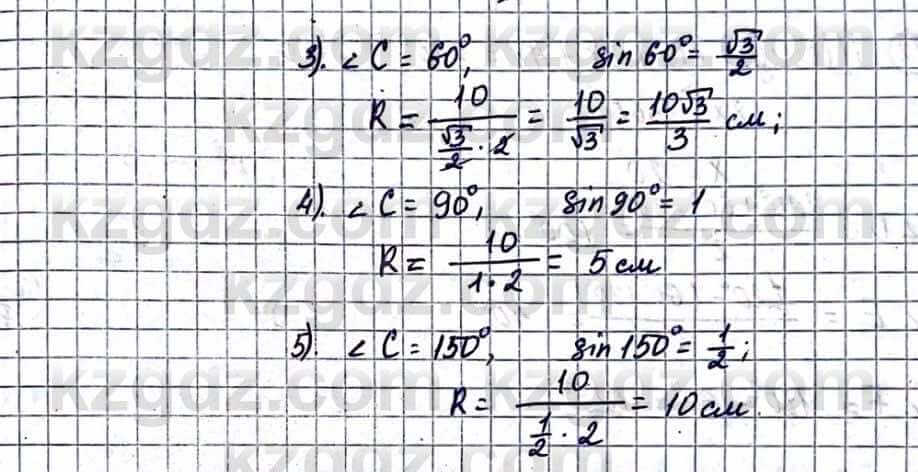 3). < C = 60°, sin 60° = √3/2
R = 10/(√3/2 · 2) = 10/√3 = 10√3/3 см;
4). < C = 90°, sin 90° = 1
R = 10/(1 · 2) = 5 см
5). < C = 150°, sin 150° = 1/2;
R = 10/(1/2 · 2) = 10 см.
kzgdz.com